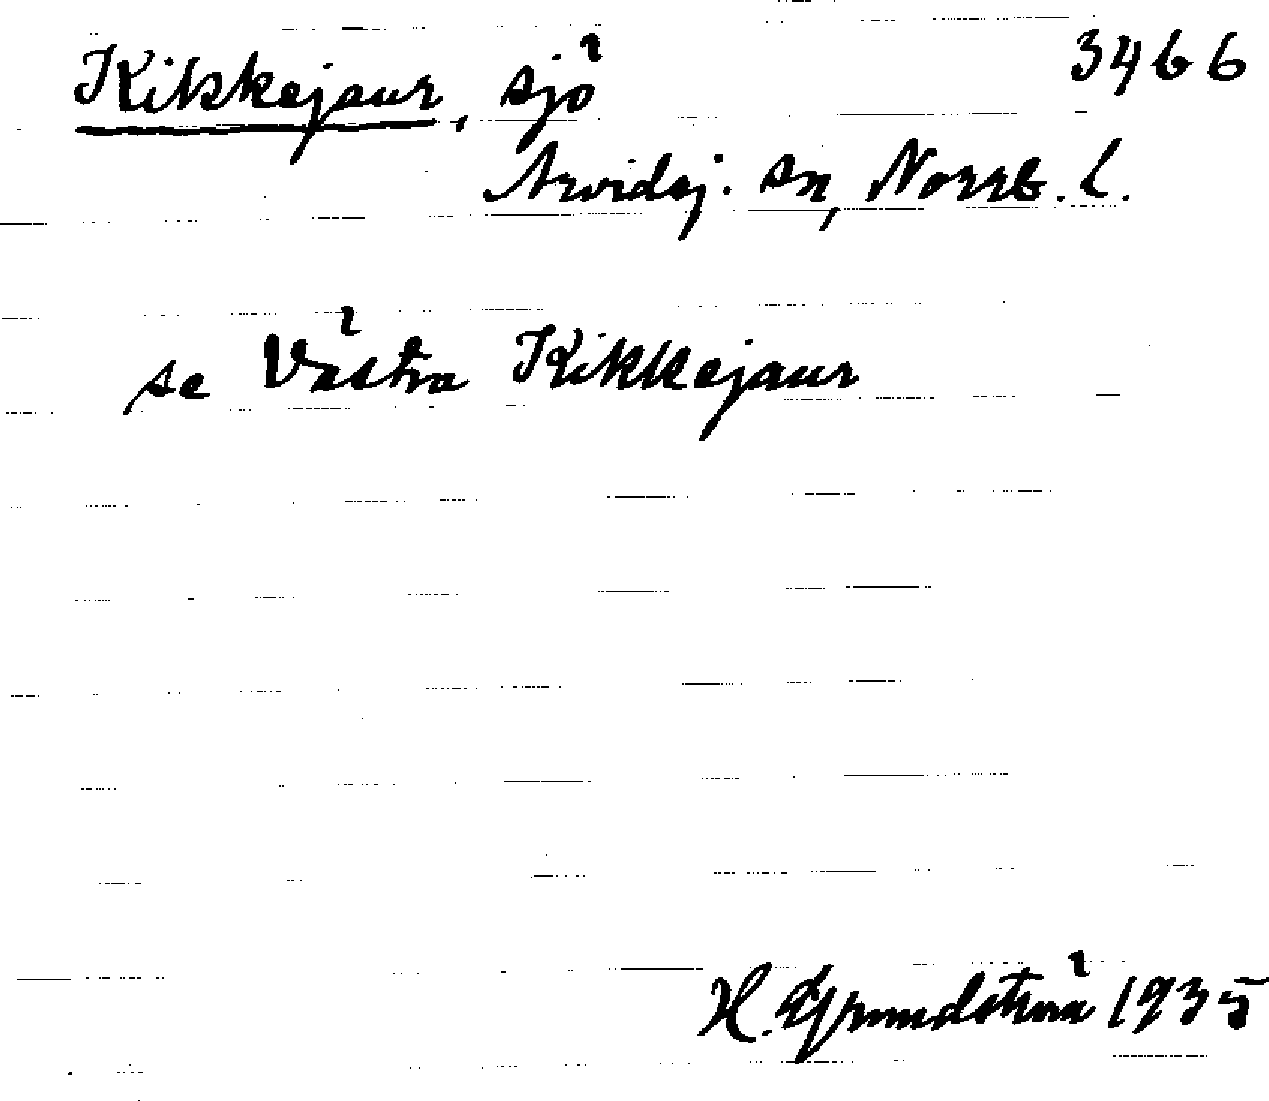 Kikkejaur, sjö 3466
Arvidsj. sn, Norrb. l.
se Västra Kikkejaur
H. Grundström 1935